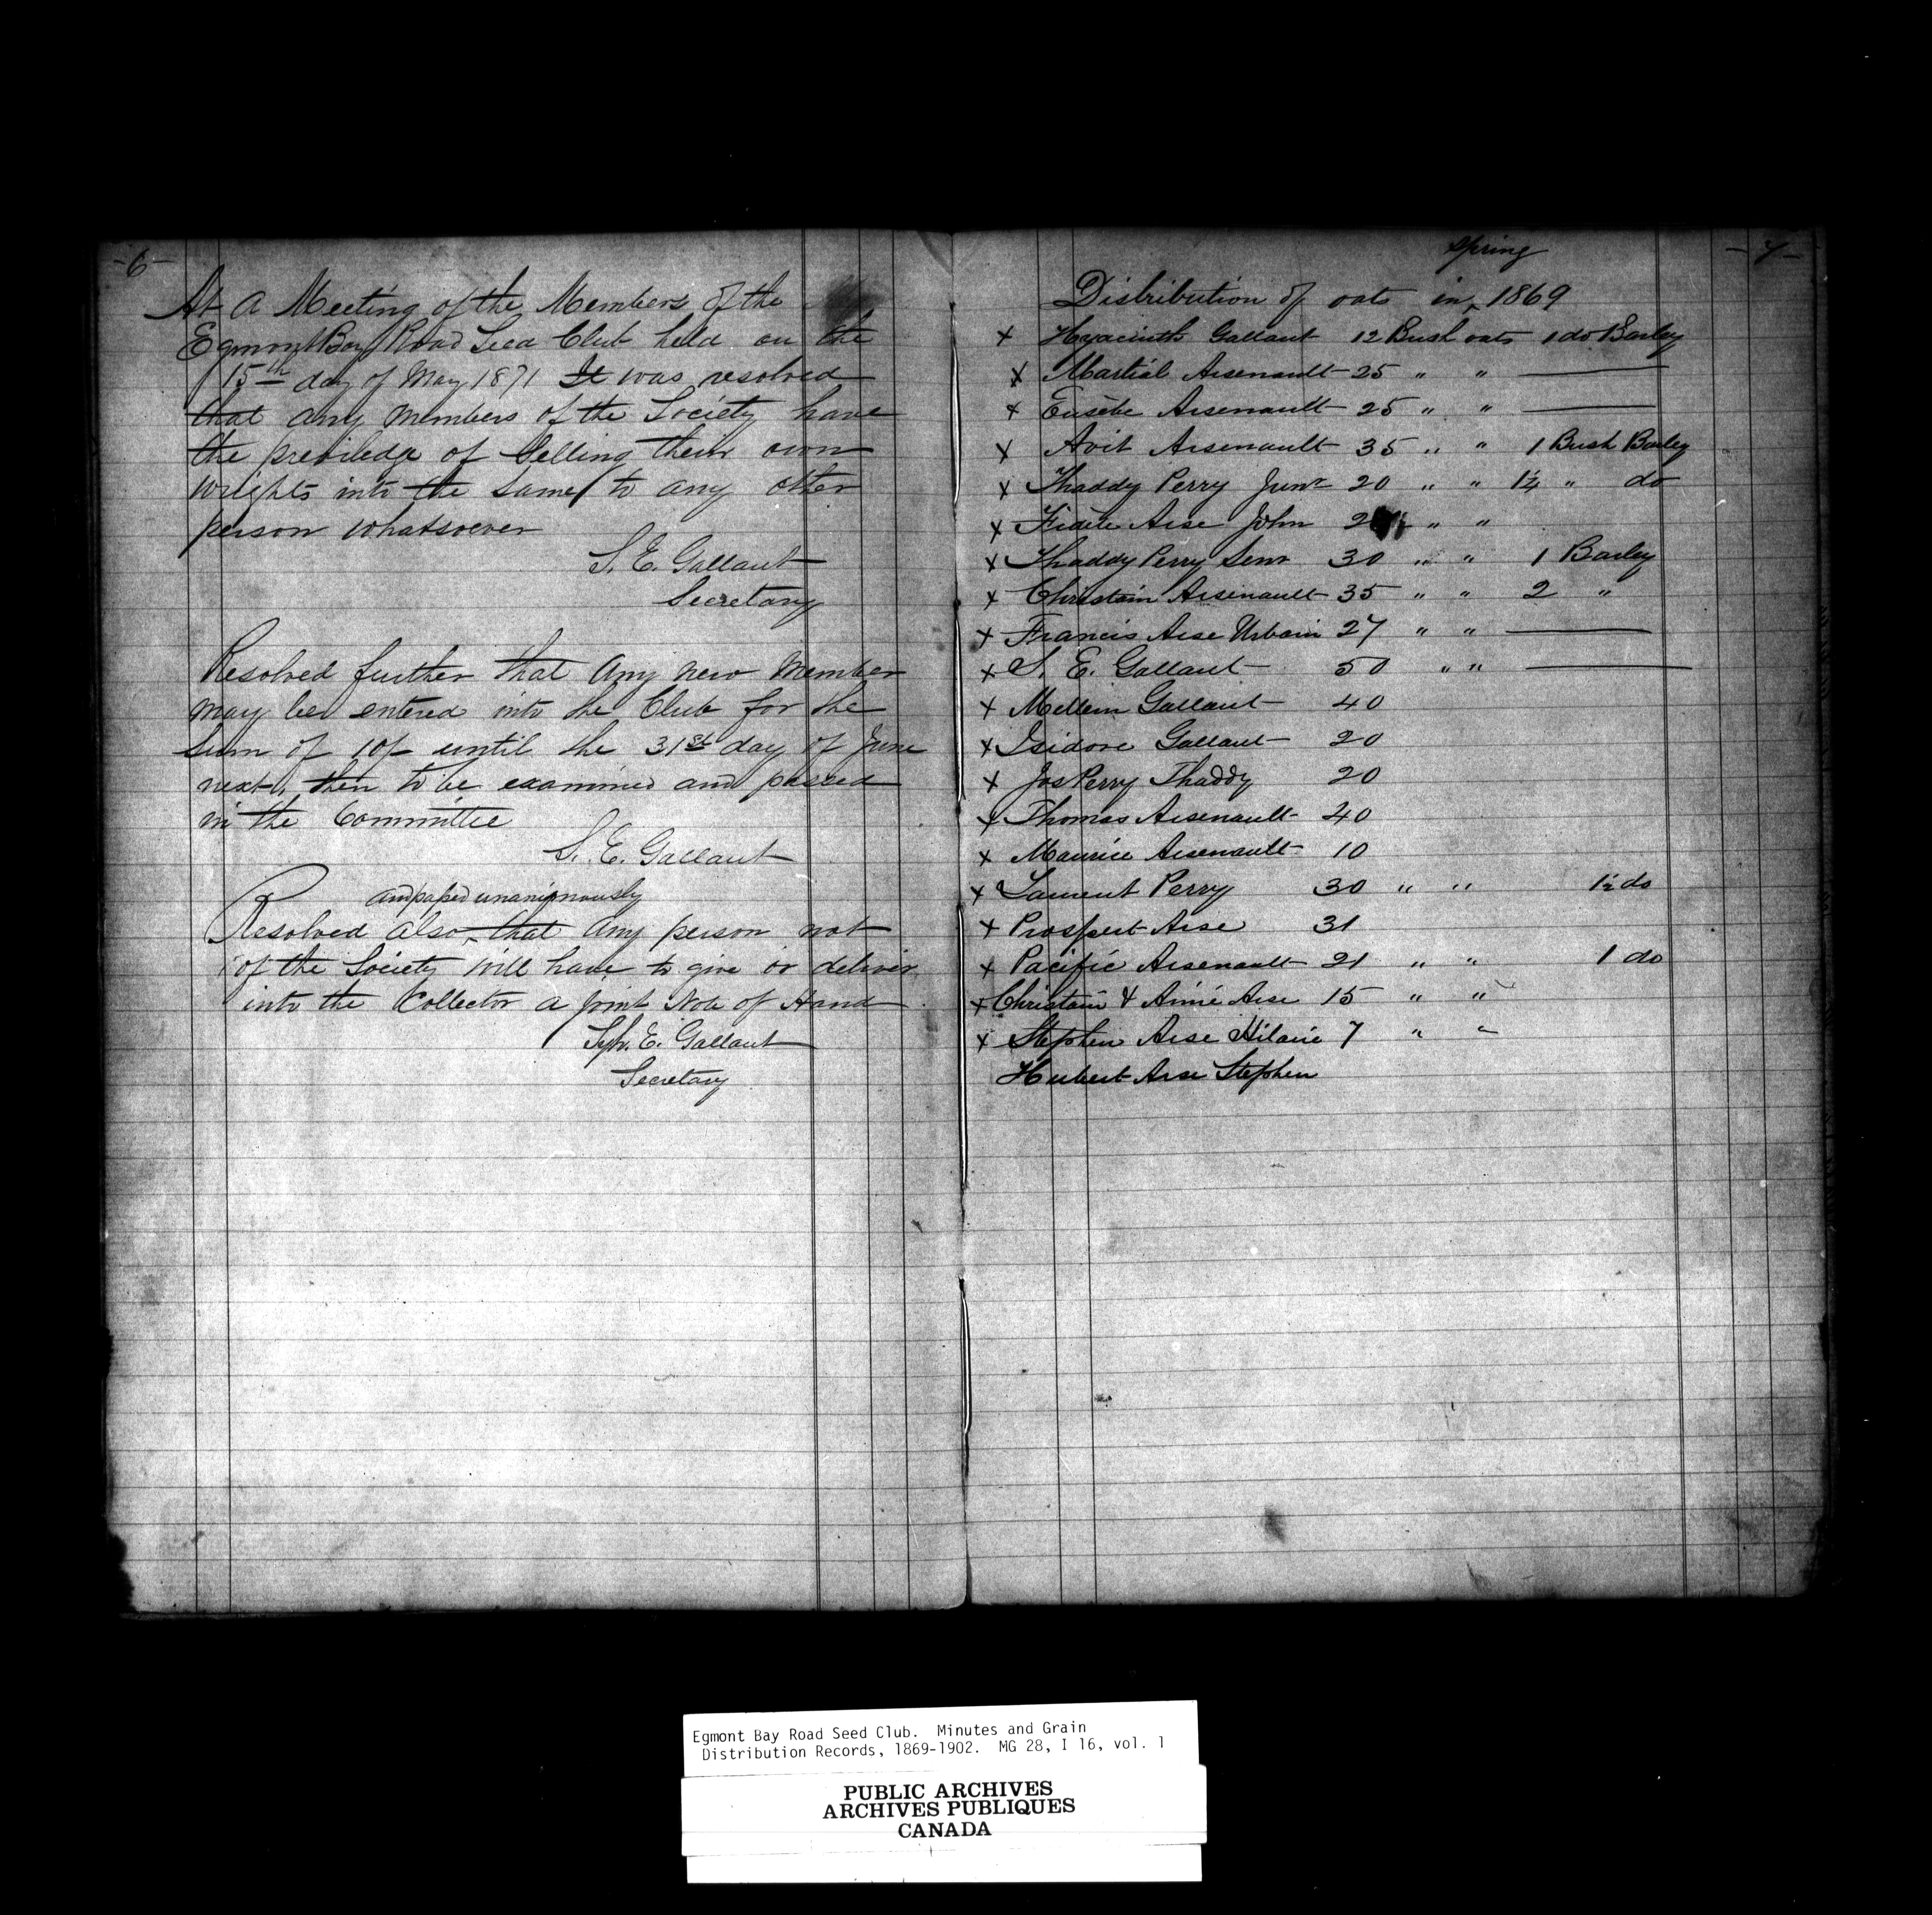 -6-
At a Meeting of the Members of the
Egmont Bay Road Seed Club held on the
15th day of May 1871 It was resolved
that any members of the Society have
the previledge of Selling their own
wrights into the same to any other
person whatsoever
S. E. Gallant
Secretary
Resolved further that any new member
may be entered into the Club for the
sum of 10/- until the 31st day of June
next, then to be examined and passed
in the Committee
S. E. Gallant
and passed unanimously
Resolved also that any person not
of the Society will have to give or deliver
into the Collector a joint Note of Hand
Syl. E. Gallant
Secretary
-7-
spring
Distribution of oats in 1869
x Hyacinth Gallant 12 Bush oats 1 do Barley
x Martial Arsenault 25 " " —
x Eusèbe Arsenault 25 " " —
x Avit Arsenault 35 " " 1 Bush Barley
x Thaddy Perry Junr 20 " " 1¼ " do
x Fidèle Arse John " "
x Thaddy Perry Senr 30 " " 1 Barley
x Christain Arsenault 35 " " 2 "
x Francis Arse Urbain 27 " " —
x S. E. Gallant 50 " " —
x Mellem Gallant 40
x Isidore Gallant 20
x Jos Perry Thaddy 20
x Thomas Arsenault 40
x Maurice Arsenault 10
x Laurent Perry 30 " " 1½ do
x Prospert Arse 31
x Pacifie Arsenault 21 " " 1 do
x Christain & Aimé Arse 15 " "
x Stephen Arse Hilaire 7 " "
Hubert Arse Stephen
Egmont Bay Road Seed Club. Minutes and Grain
Distribution Records, 1869-1902. MG 28, I 16, vol. 1
PUBLIC ARCHIVES
ARCHIVES PUBLIQUES
CANADA